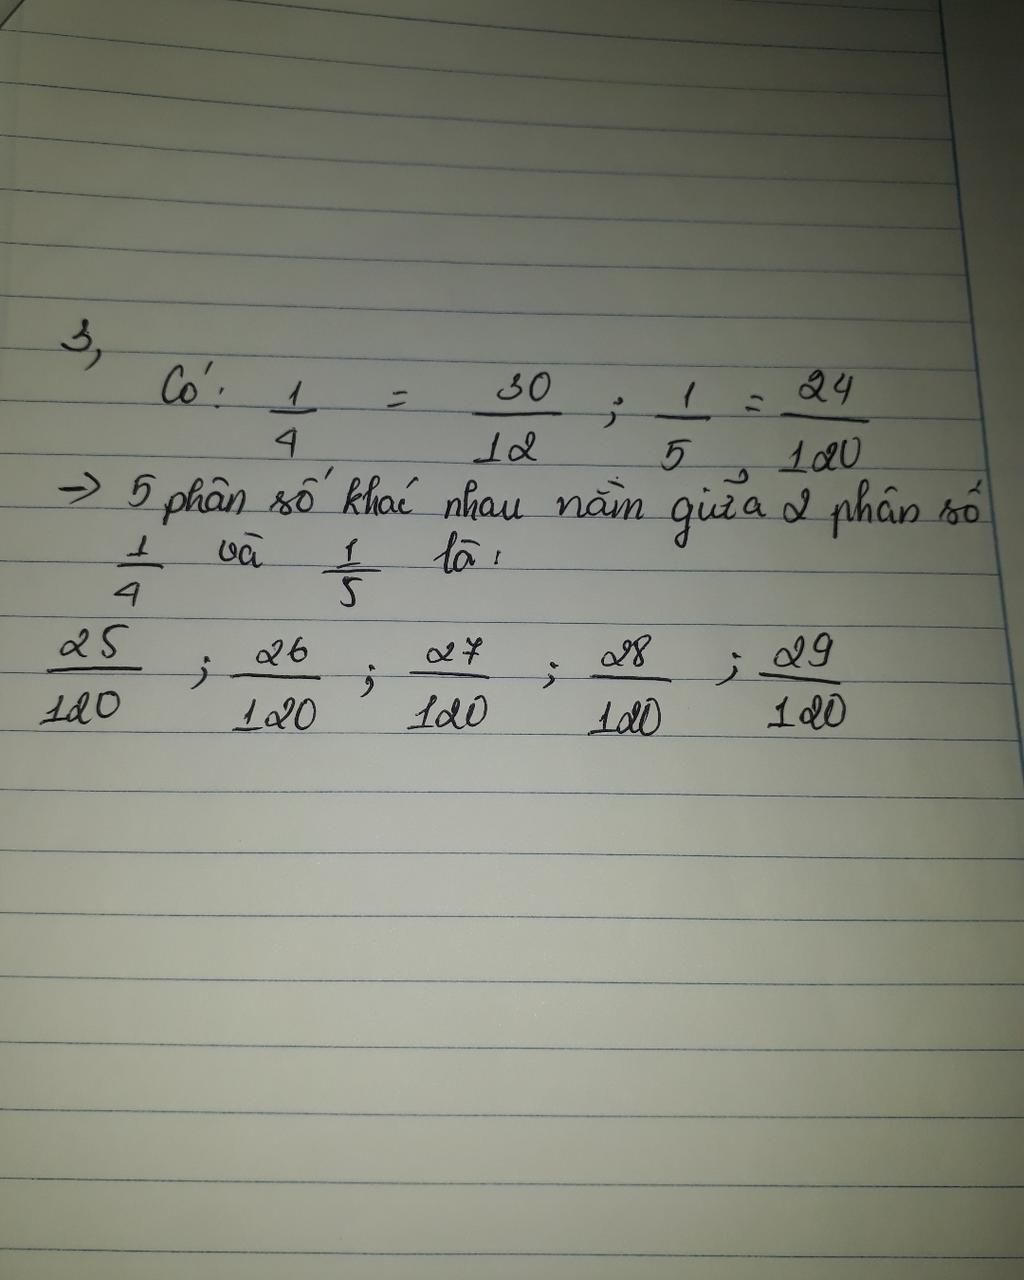 3,
Có: 1/4 = 30/12 ; 1/5 = 24/120
→ 5 phân số khác nhau nằm giữa 2 phân số
1/4 và 1/5 là:
25/120 ; 26/120 ; 27/120 ; 28/120 ; 29/120